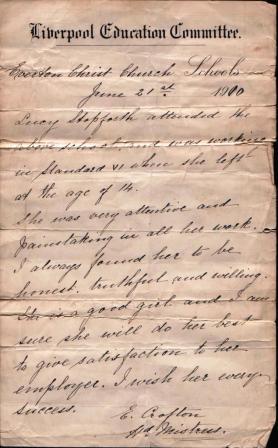 Liverpool Education Committee.
Everton Christ Church Schools
June 21st. 1900
Lucy Stopforth attended the
above school, and was working
in Standard VI when she left
at the age of 14.
She was very attentive and
painstaking in all her work.
I always found her to be
honest, truthful and willing.
She is a good girl and I am
sure she will do her best
to give satisfaction to her
employer. I wish her every
success.
E. Crofton
Hd. Mistress.